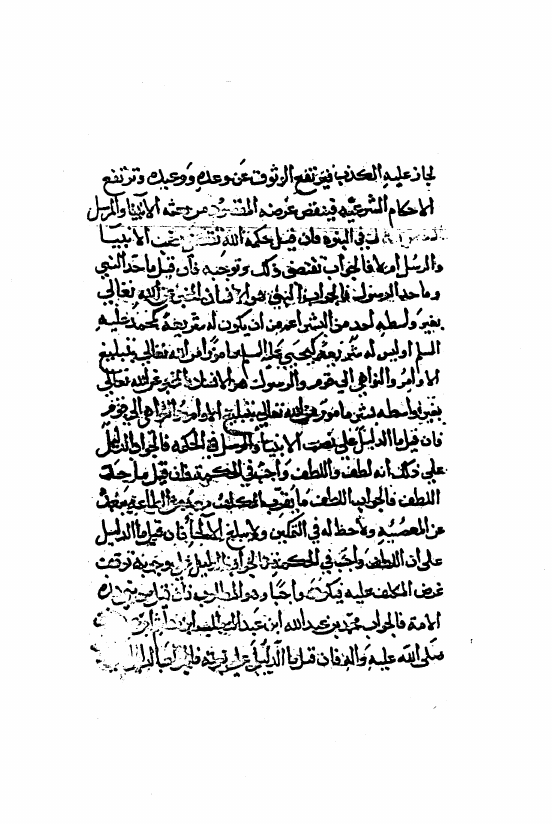 لجاز عليه الكذب فيرتفع الوثوق عن وعده ووعيده وترتفع
الاحكام الشرعيه فينتقض غرضه المقصود من بعثه الانبيا والرسل
في النبوه فان قيل حكمة الله تقتضي نصب الانبيا
والرسل ام لا فالجواب تقتضي ذلك وتوجبه فان قيل ما حد النبي
وما حد الرسول فالجواب النبي هو الانسان المخبر عن الله تعالى
بغير واسطه احد من البشر اعم من ان يكون له شريعة كمحمد عليه
السلم او ليس له شريعه كيحيى عليه السلم مامورا من الله تعالى بتبليغ
الاوامر والنواهي الى قوم والرسول هو الانسان المخبر عن الله تعالى
بغير واسطه بشر مامور من الله تعالى بتبليغ الاوامر والنواهي الى قوم
فان قيل ما الدليل على نصب الانبيا والرسل في الحكمه فالجواب الدليل
على ذلك انه لطف واللطف واجب في الحكمة فان قيل ما حد
اللطف فالجواب اللطف ما يقرب المكلف معه من الطاعة ويبعد
عن المعصيه ولا حظ له في التمكين ولا يبلغ الالجا فان قيل ما الدليل
على ان اللطف واجب في الحكمة فالجواب الدليل على وجوبه توقف
غرض المكلف عليه فيكون واجبا وهو المطلوب فان قيل من نبي هذه
الامة فالجواب محمد بن عبد الله ابن عبد المطلب ابن
صلى الله عليه واله فان قيل ما الدليل على نبوته فالجواب